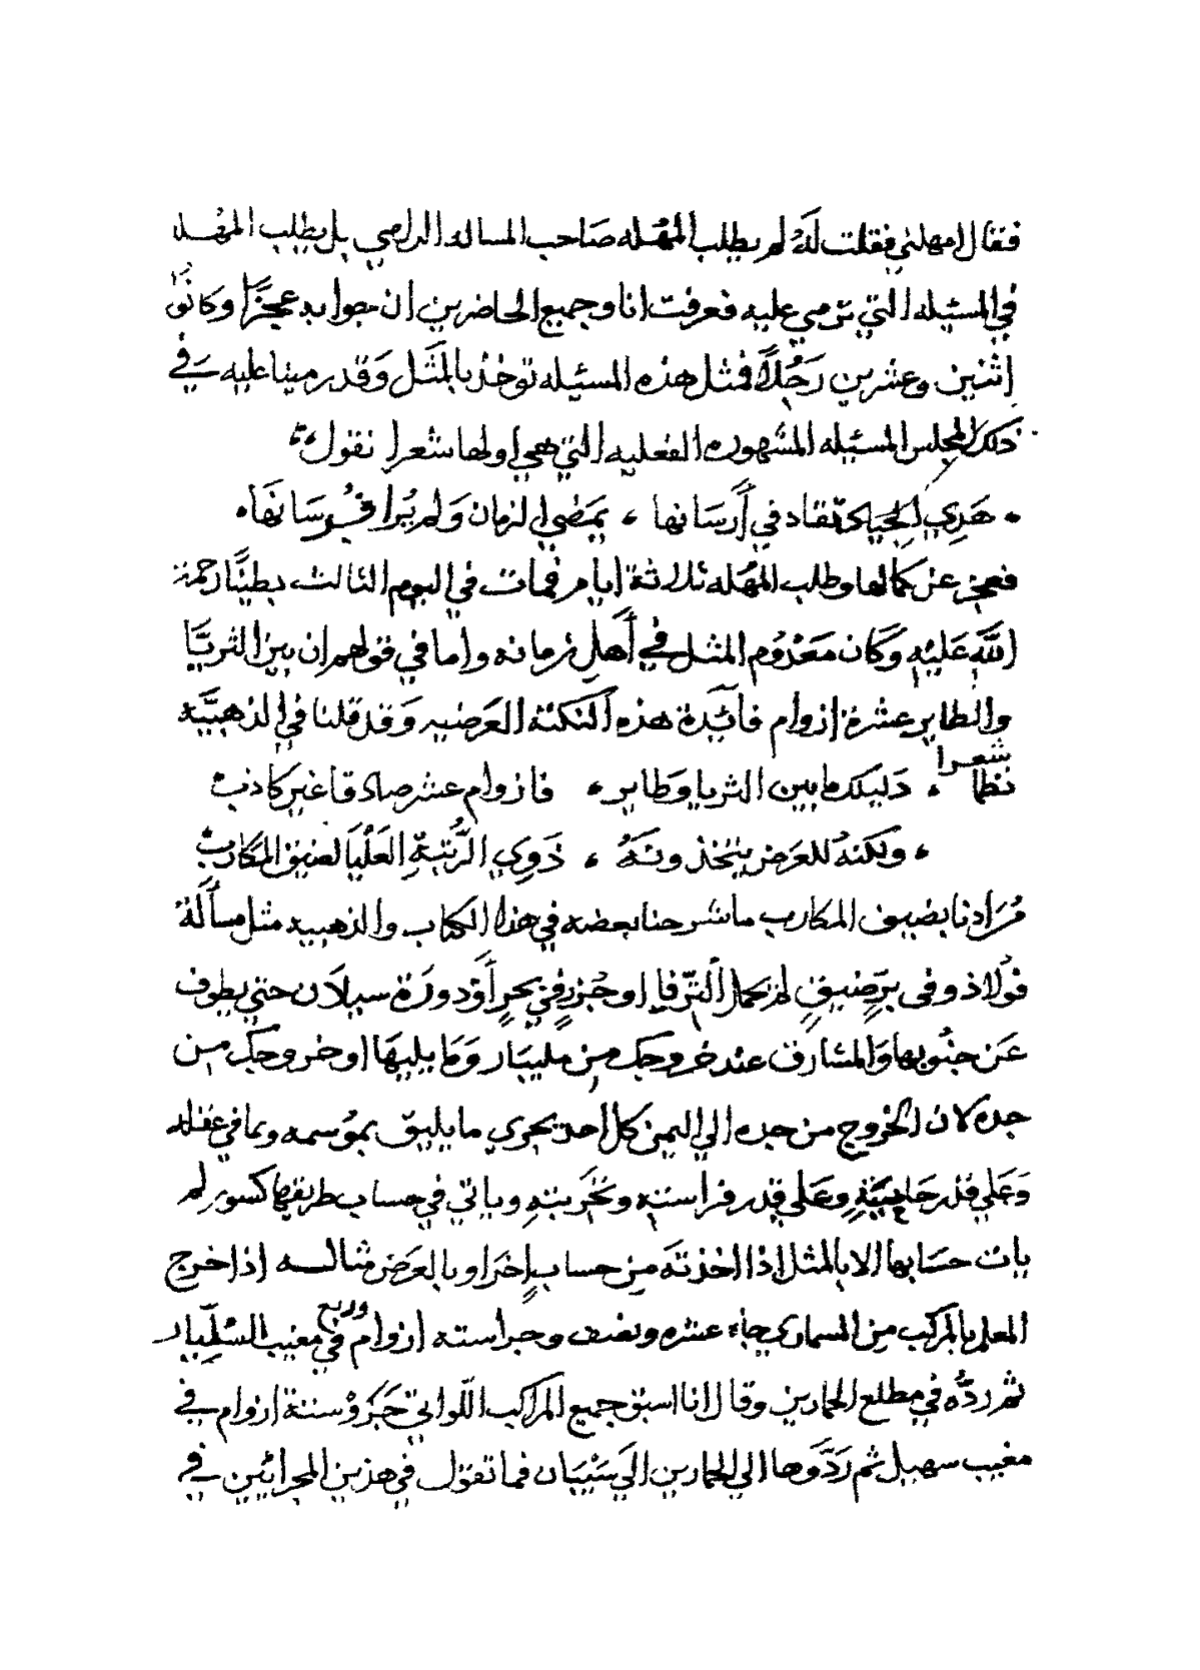 فقال امهلني فقلت لَهُ لم يطلب المُهْله صَاحب المساله الرامي بل يطلب المهله
في المسئيله التي ترمي عليه فعرفت انا وجميع الحاضرين ان جوابه عجزًا وكانوُا
اثنين وعشرين رَجُلاً فمثل هذه المسئيله توخذ بالمَثَل وَقد رمينا عليه في
ذلك المجلس المسئيله المشهوره الفعليه التي هي اولها شعرا نقول
هَذِي الجياد تقاد في أَرسَانها ، يَمضي الزمان وَلم يُرا فُرسَانهَا
فعجز عن كمالها وطلب المهُله ثلاثة ايام فمات في اليوم الثالث بطيبًا رحمة
اللَّه عَليْهِ وَكَان مَعْدُوم المثل في أَهلِ زمانه واما في قولهم ان بين الثريَّا
والطاير عشرة ازوام فائيدة هذه النكتة العَرضيه وَقد قلنا في الذهبيَّة
نظما شعرا ، دَليلك ما بين الثريا وَطاير ، فازوام عشر صادقا غير كاذب
، ولكنهُ للعَرض يتخذونهُ ، ذَوِي الرُّتبةِ العَلْيَا لضيق المكارب
مُرَادنا بضيق المكارب ما شرحنا بعضه في هذا الكتاب والذهبيه مثل مسألة
فولاذ وفى برٍّ ضيقٍ لم يحمل الترفا او جُزرٍ في بحرٍ أو دورَة سيلاَن حتي يطوف
عَن جنُوبها وَالمشارق عند خروجك من مليبَار وَمَا يليهَا او خروجك من
جده لان الخروج من جده الي اليمن كل احد يجري ما يليق بموُسمه وبما في عقله
وَعَلي قدر حَاجيَّةٍ وعَلى قدر فراسته وتجَربته وياتي في حساب طريقها كسور لم
يات حسَابها الا بالمثل اذا اخذتَه من حسابٍ اخرَ او بالعَرض مثاله اذا خرج
المعلم بالمركب من السماري جاه عشره ونصف وحراسته ازوام وربع في مغيب السُلّبار
ثم ردُّه في مطلع الحمارين وقال انا اسبق جميع المراكب اللّواتي جَرَوْ ستة ازوام في
مغيب سهيل ثم رَدَّوها الي الحمارين الَي سَيْبَان فما تقوْل في هذين المجرائين في